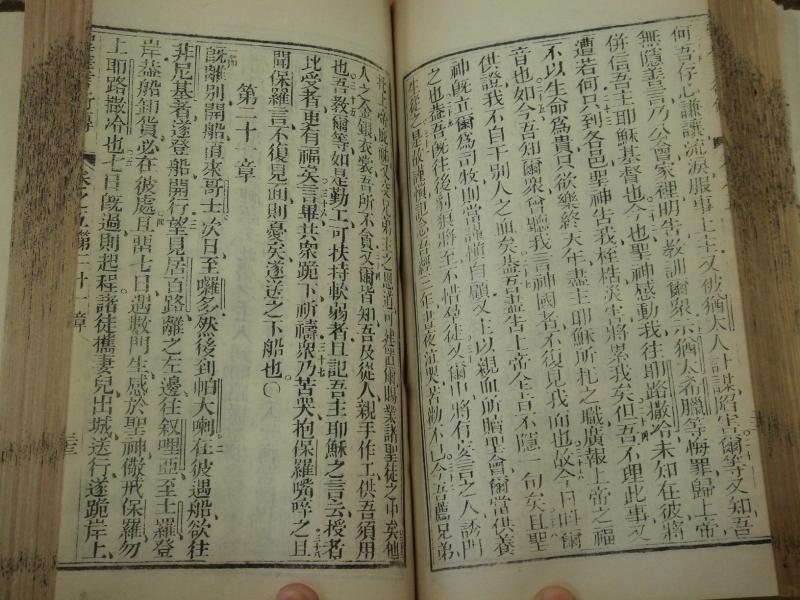 何吾存心謙讓流淚服事上主又被猶太人計謀陷牢爾等又知吾
無隱善言乃公會家裡明告教訓爾衆示猶太希臘等悔罪歸上帝
併信吾主耶穌基督也今也聖神感動我往耶路撒冷未知在彼將
遭若何只到各邑聖神告我桎梏災害將累我矣但吾不理此事又
不以生命爲貴只欲樂終天年盡主耶穌所托之職廣報上帝之福
音也如今吾知爾衆曾聽我言神國者不復見我面也故今日爾
供證我不自干別人之血矣蓋吾盡告上帝全旨不隱一句矣且聖
神旣立爾爲司牧則當謹慎自顧又主以親血所贖聖會爾當供養
之也蓋吾旣往後豺狼將至不惜羊徒又爾中將有妄言之人誘門
生從之是故謹慎記念吾經三年晝夜流哭苦勸不已今吾薦兄弟
托上帝主之恩道可建爾賜業諸聖徒之中矣他
人之金銀衣裳吾所不貪又爾皆知吾及從人親手作工供吾須用
也吾教爾等如是勤工可扶持軟弱者且記吾主耶穌之言云授者
比受者更有福矣言畢共衆跪下祈禱衆乃苦哭抱保羅嘴啐之且
聞保羅言不復見面則憂矣遂送之下船也○
第二十一章
旣離別開船直來哥士次日至囉多然後到帕大喇在彼遇船欲往
非尼基者遂登船開行望見居百路離之左邊往叙哩亞至土羅登
岸蓋船卸貨必在彼處且畱七日遇數門生感於聖神儆戒保羅勿
上耶路撒冷也七日旣過則起程諸徒攜妻兒出城送行遂跪岸上
卷之五第二十一章